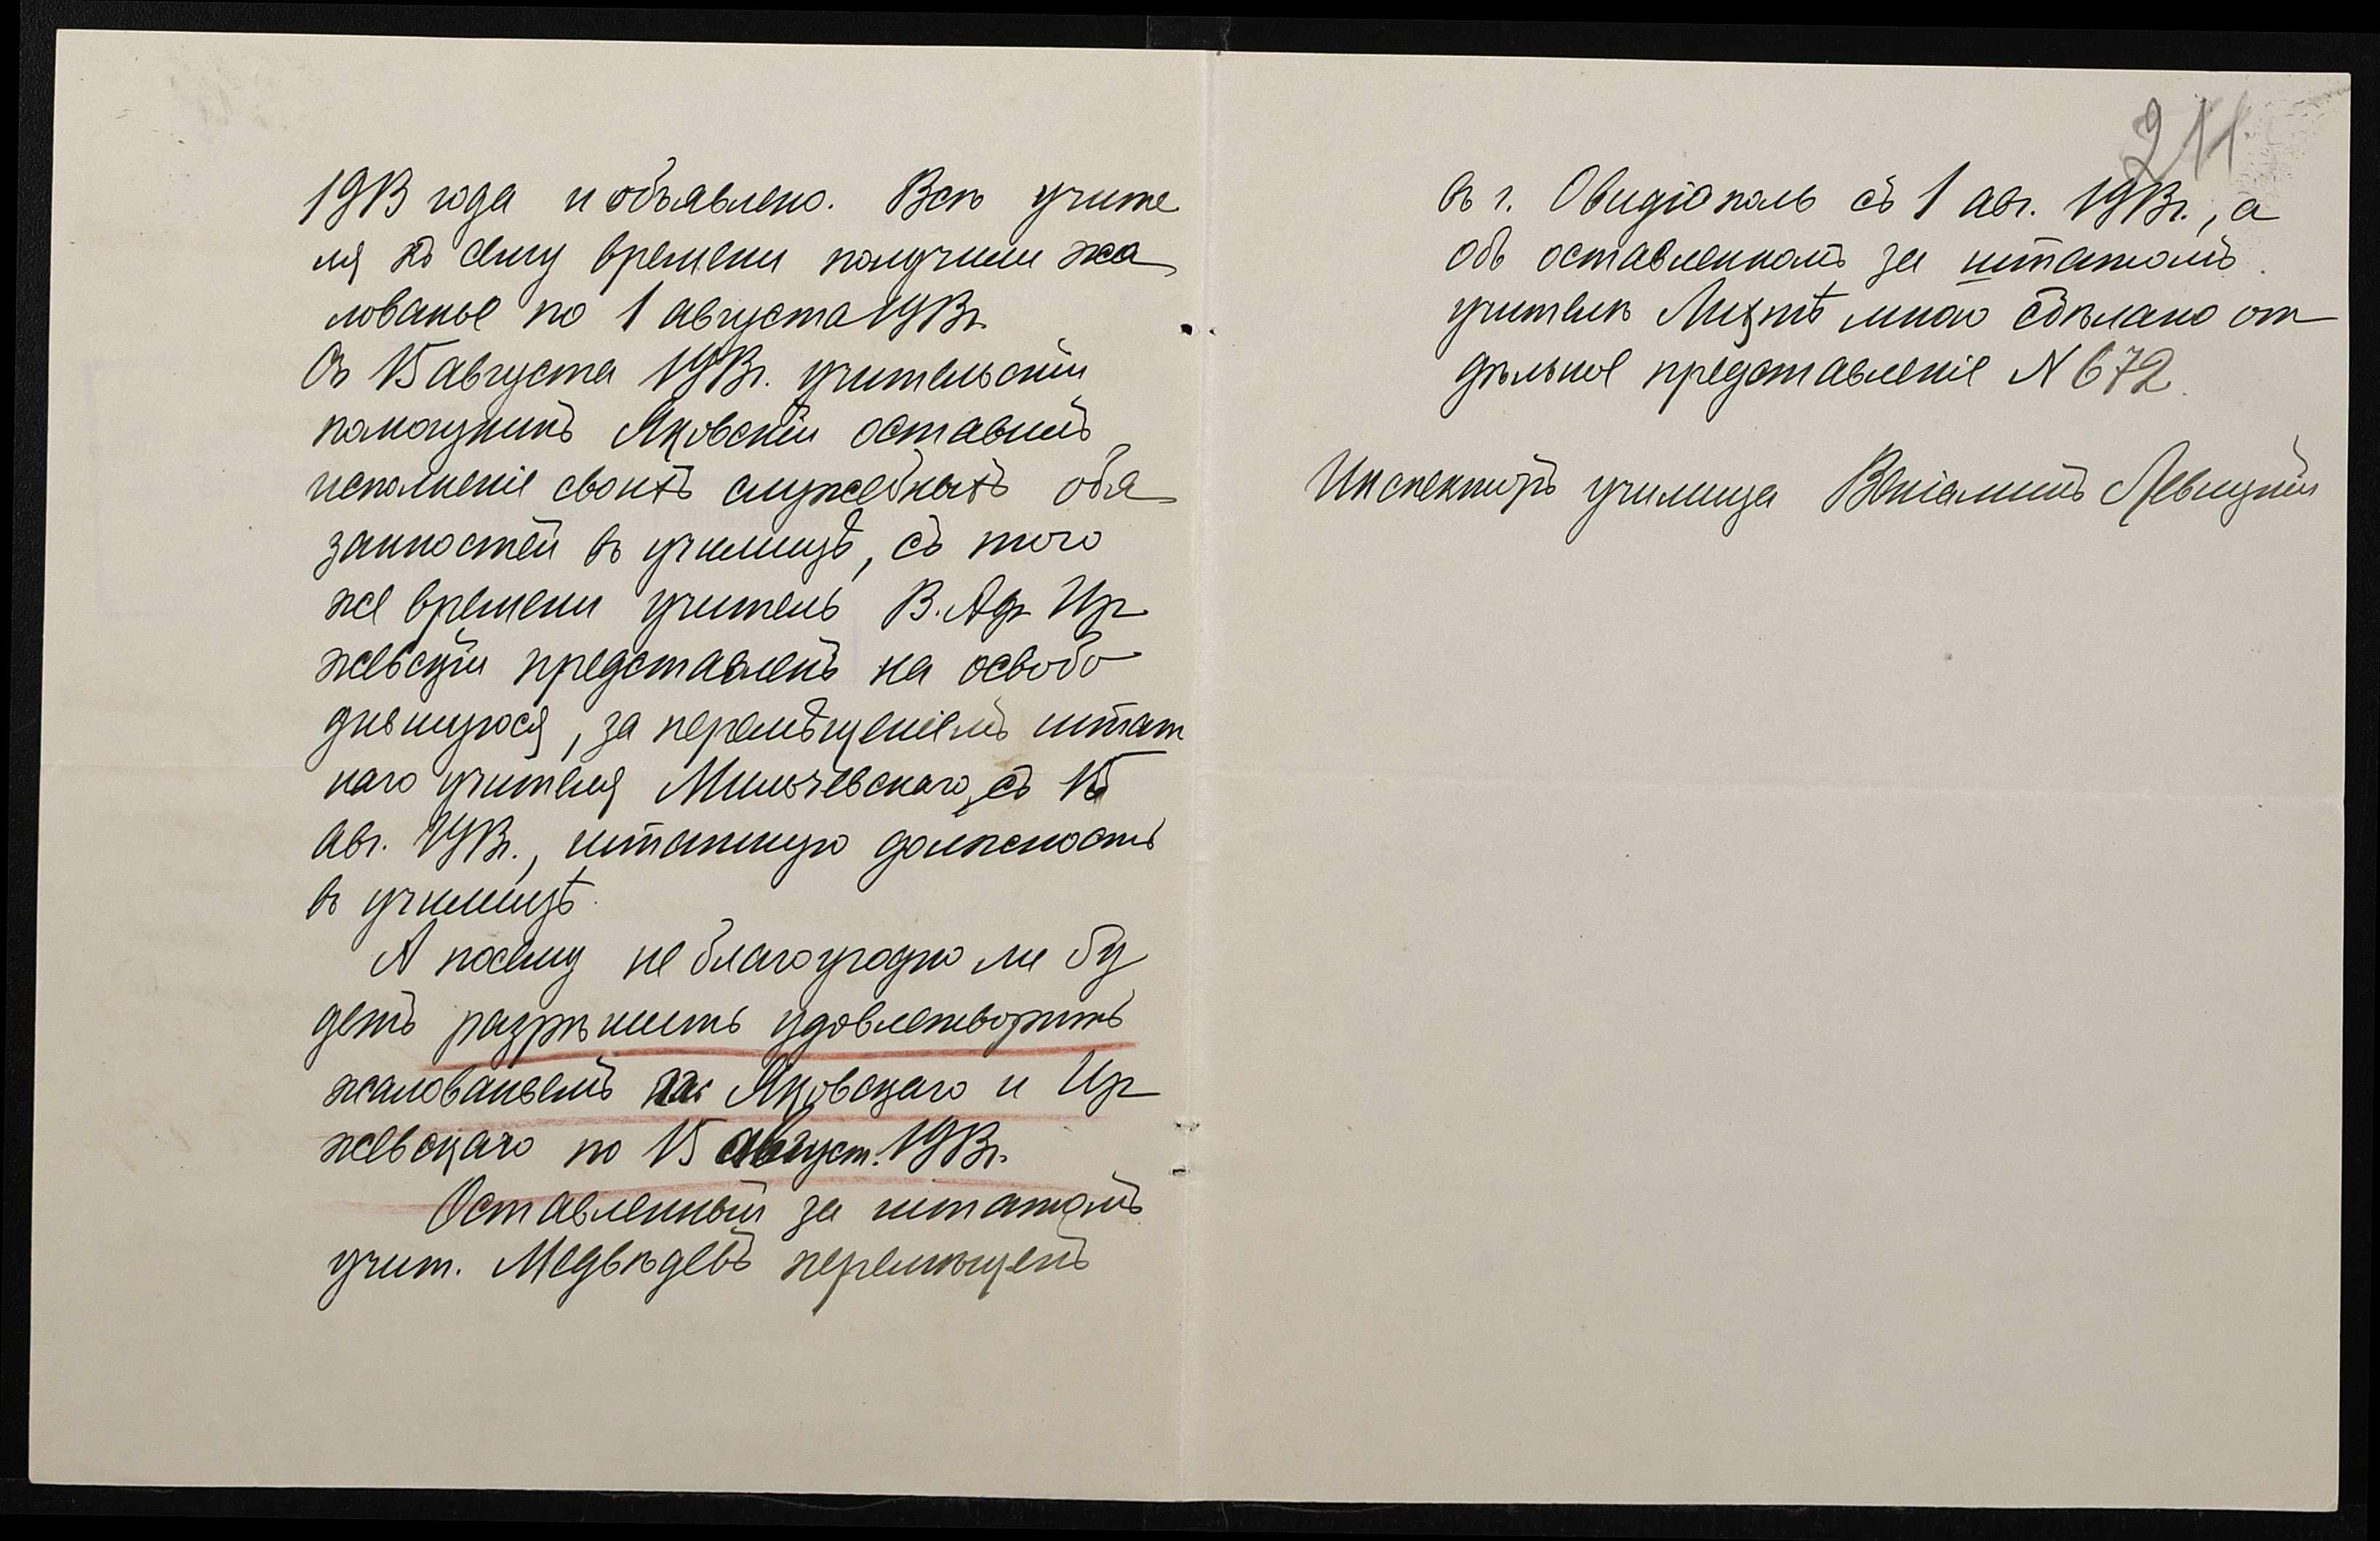 1913 года и объявлено. Всѣ учите
ля къ сему времени получили жа
лованье по 1 августа 1913г.
Съ 15 августа 1913г. учительскій
помощникъ Яковскій оставилъ
исполненіе своихъ служебныхъ обя
занностей въ училищѣ, съ того
же времени учитель В. Ир
жевскій представленъ на освобо
дившуюся, за перемѣщеніемъ штат
наго учителя Мильчевскаго, съ 15
авг. 1913г., штатную должность
въ училищѣ.
А посему не благоугодно ли бу
детъ разрѣшить удовлетворить
жалованьемъ Яковскаго и Ир
жевскаго по 15 август. 1913г.
Оставленный за штатомъ
учит. Медвѣдевъ перемѣщенъ
211
въ г. Овидіополь съ 1 авг. 1913г., а
объ оставленномъ за штатомъ
учителѣ мною сдѣлано от
дѣльное представленіе N 672.
Инспекторъ училища Веніаминъ Левицкій